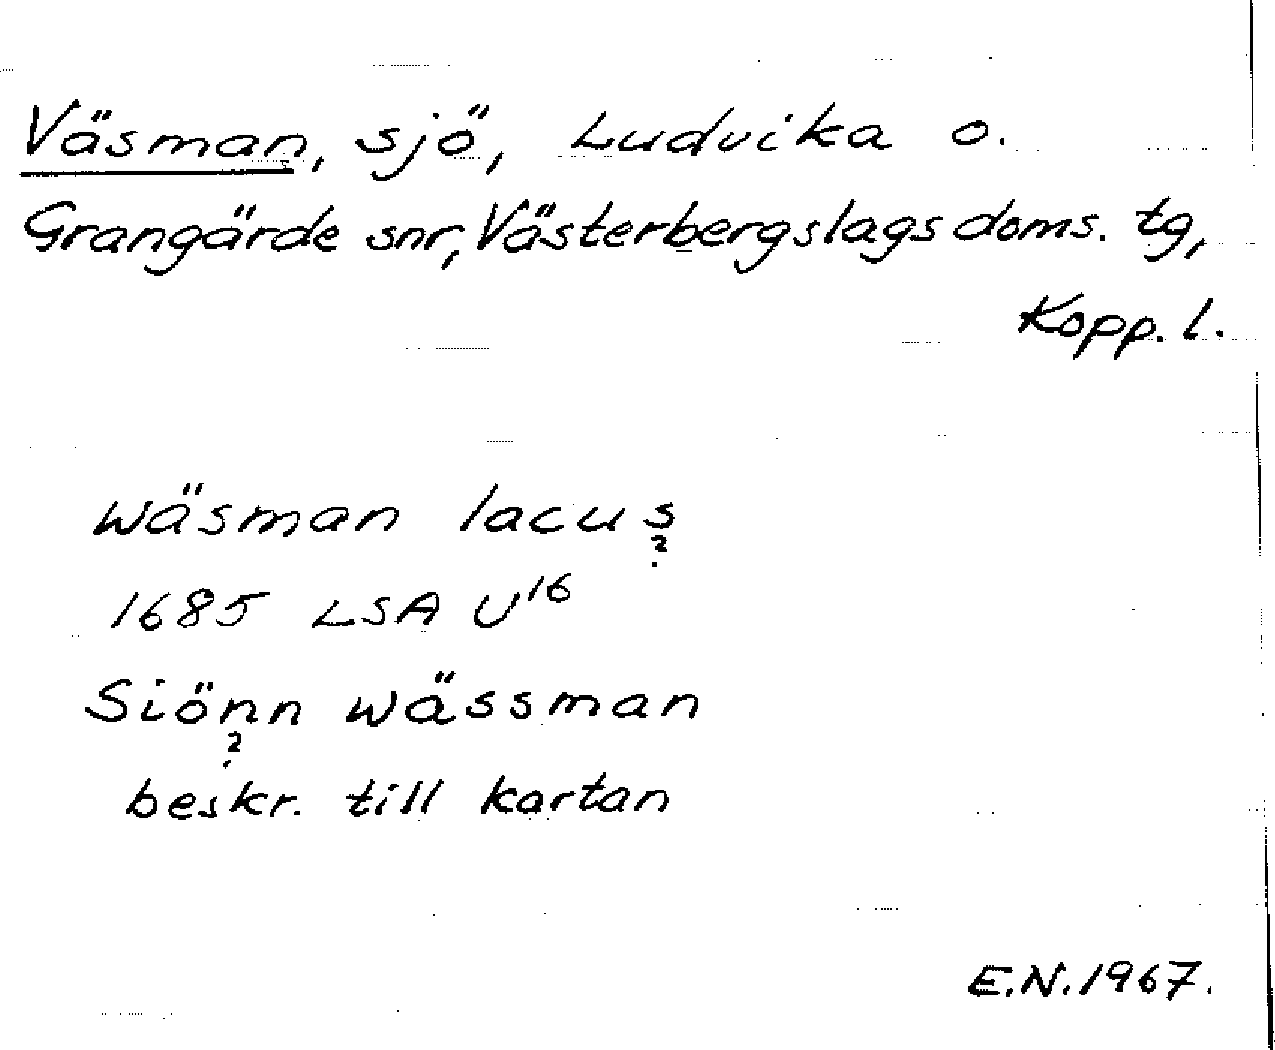 Väsman, sjö, Ludvika o.
Grangärde snr, Västerbergslags doms. tg,
Kopp. l.
wäsman lacus
?
1685 LSA U16
Siönn wässman
?
beskr. till kartan
E.N. 1967.